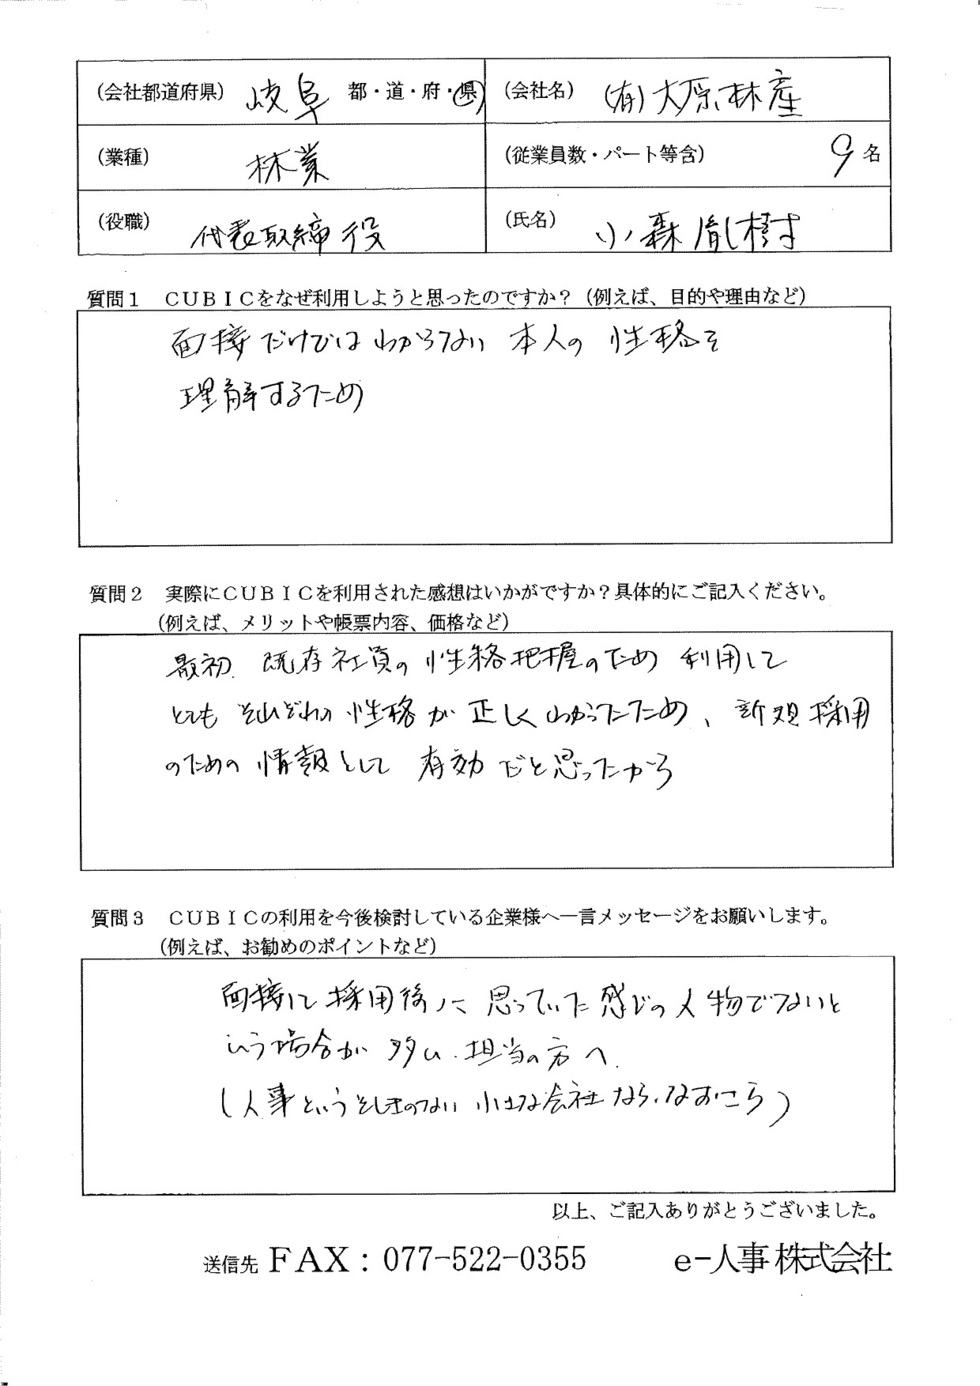 (会社都道府県) 岐阜 都・道・府・県 (会社名) (有)大原林産
(業種) 林業 (従業員数・パート等含) 9名
(役職) 代表取締役 (氏名) 小森胤樹
質問1 CUBICをなぜ利用しようと思ったのですか?(例えば、目的や理由など)
面接だけではわからない本人の性格を
理解するため
質問2 実際にCUBICを利用された感想はいかがですか?具体的にご記入ください。
(例えば、メリットや帳票内容、価格など)
最初、既存社員の性格把握のため利用して
とてもそれぞれの性格が正しくわかったため、新規採用
のための情報として有効だと思ったから
質問3 CUBICの利用を今後検討している企業様へ一言メッセージをお願いします。
(例えば、お勧めのポイントなど)
面接して採用後に思っていた感じの人物でないと
いう場合が多い、担当の方へ、
(人事という のない小さな会社なら、なおさら)
以上、ご記入ありがとうございました。
送信先 FAX:077-522-0355 e-人事株式会社